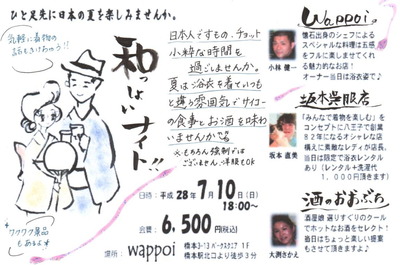 ひと足先に日本の夏を楽しみませんか。
気軽に着物の
話もきけちゃう!!
和っしょい
ナイト!!
日本人ですもの、チョット
小粋な時間を
過ごしませんか。
夏は浴衣を着ていつも
と違う雰囲気でサイコー
の食事とお酒を味わ
いませんか
※もちろん強制では
ございません。洋服でもOK
ワクワク景品
もあるよ
日時:平成28年7月10日(日)
18:00~
会費:6,500円(税込)
場所:wappoi
橋本3-13パークスクエア1F
橋本駅北口より徒歩3分
wappoi
小林 健一
懐石出身のシェフによる
スペシャルな料理は五感
をフルに楽しませてくれ
る魅力的なお店!
オーナー当日は浴衣姿で♪
坂本呉服店
坂本 直美
「みんなで着物を楽しむ」を
コンセプトに八王子で創業
82年になるオシャレな店
構えに素敵なレディが店長。
当日は限定で浴衣レンタル
あり(レンタル+洗濯代
1,000円頂きます)
酒のおおぶち
大渕さかえ
酒屋娘 選りすぐりのクール
でホットなお酒をセレクト!
当日はちょっと楽しい提案
もさせて頂きますよ♪